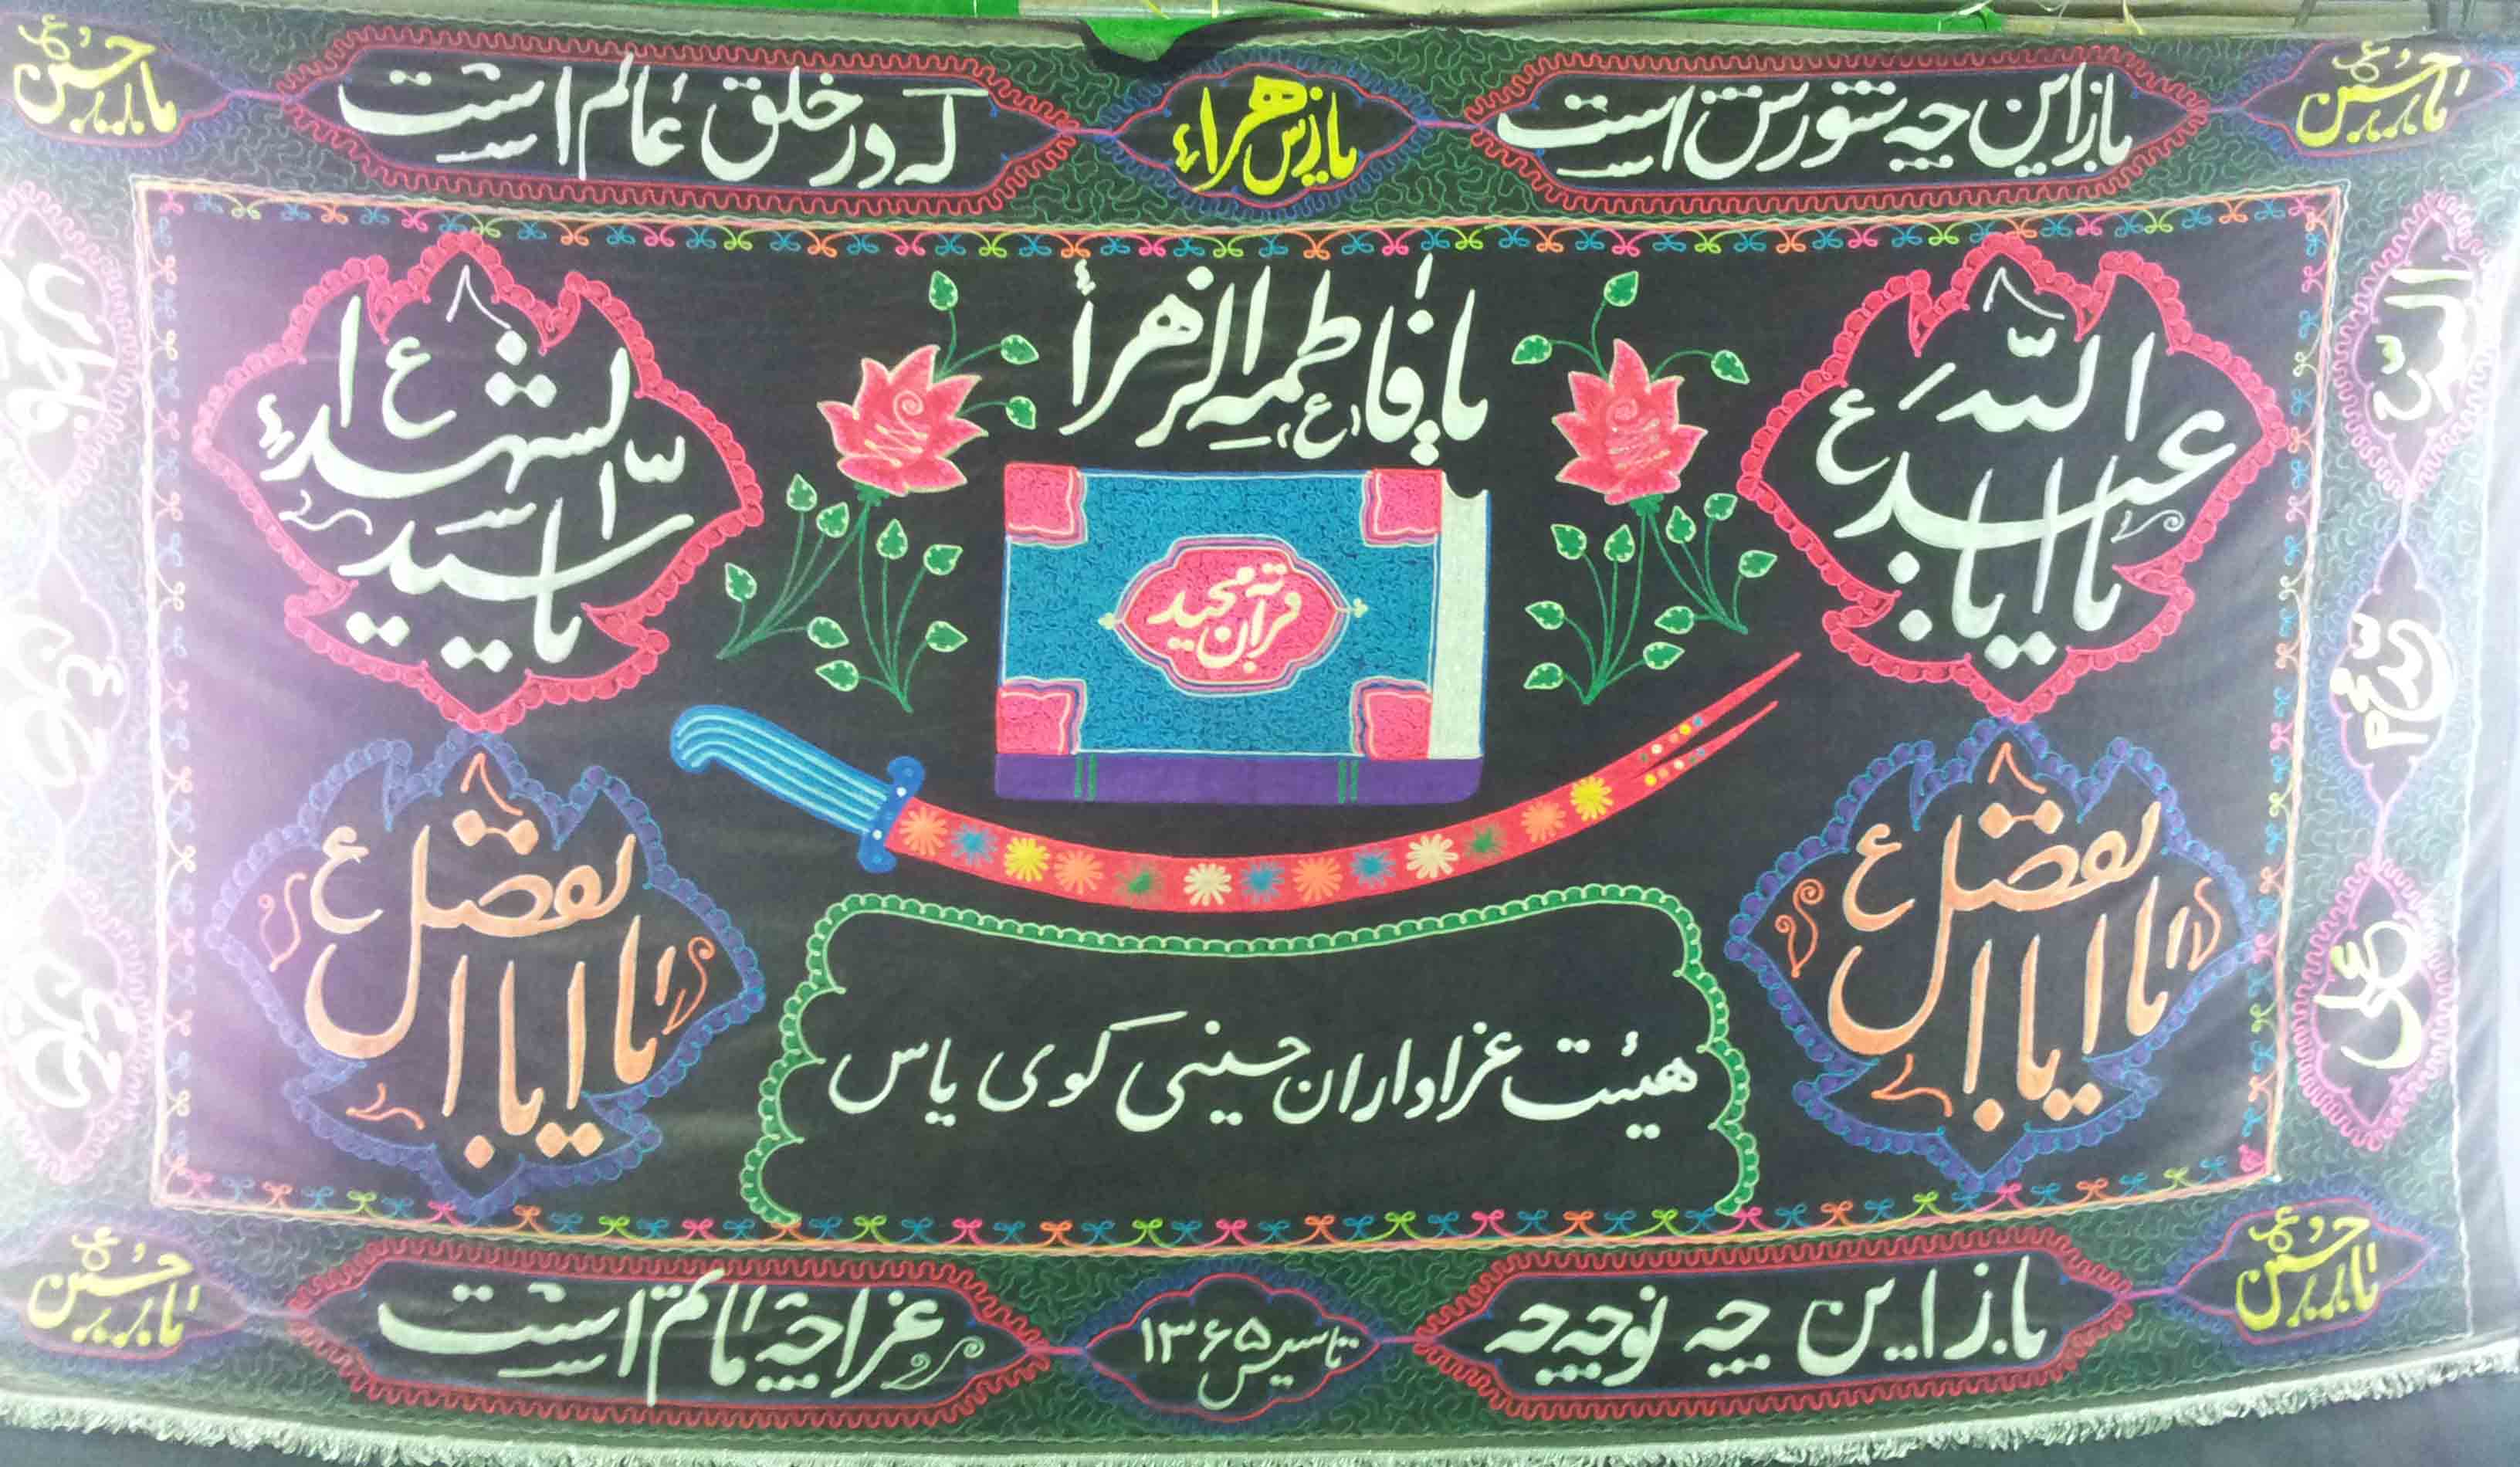 یا حسین ع
باز این چه شورش است
یا زهراء
که در خلق عالم است
یا حسین ع
یا فاطمه الزهرأ (ع)
یا ابا عبدالله ع
یا سیدالشهداء ع
قرآن مجید
یا اباالفضل ع
یا اباالفضل ع
هیئت عزاداران حسینی کوی یاس
السلام
علی
یا حسین ع
باز این چه نوحه چه
تاسیس ۱۳۶۵
عزا چه ماتم است
یا حسین ع